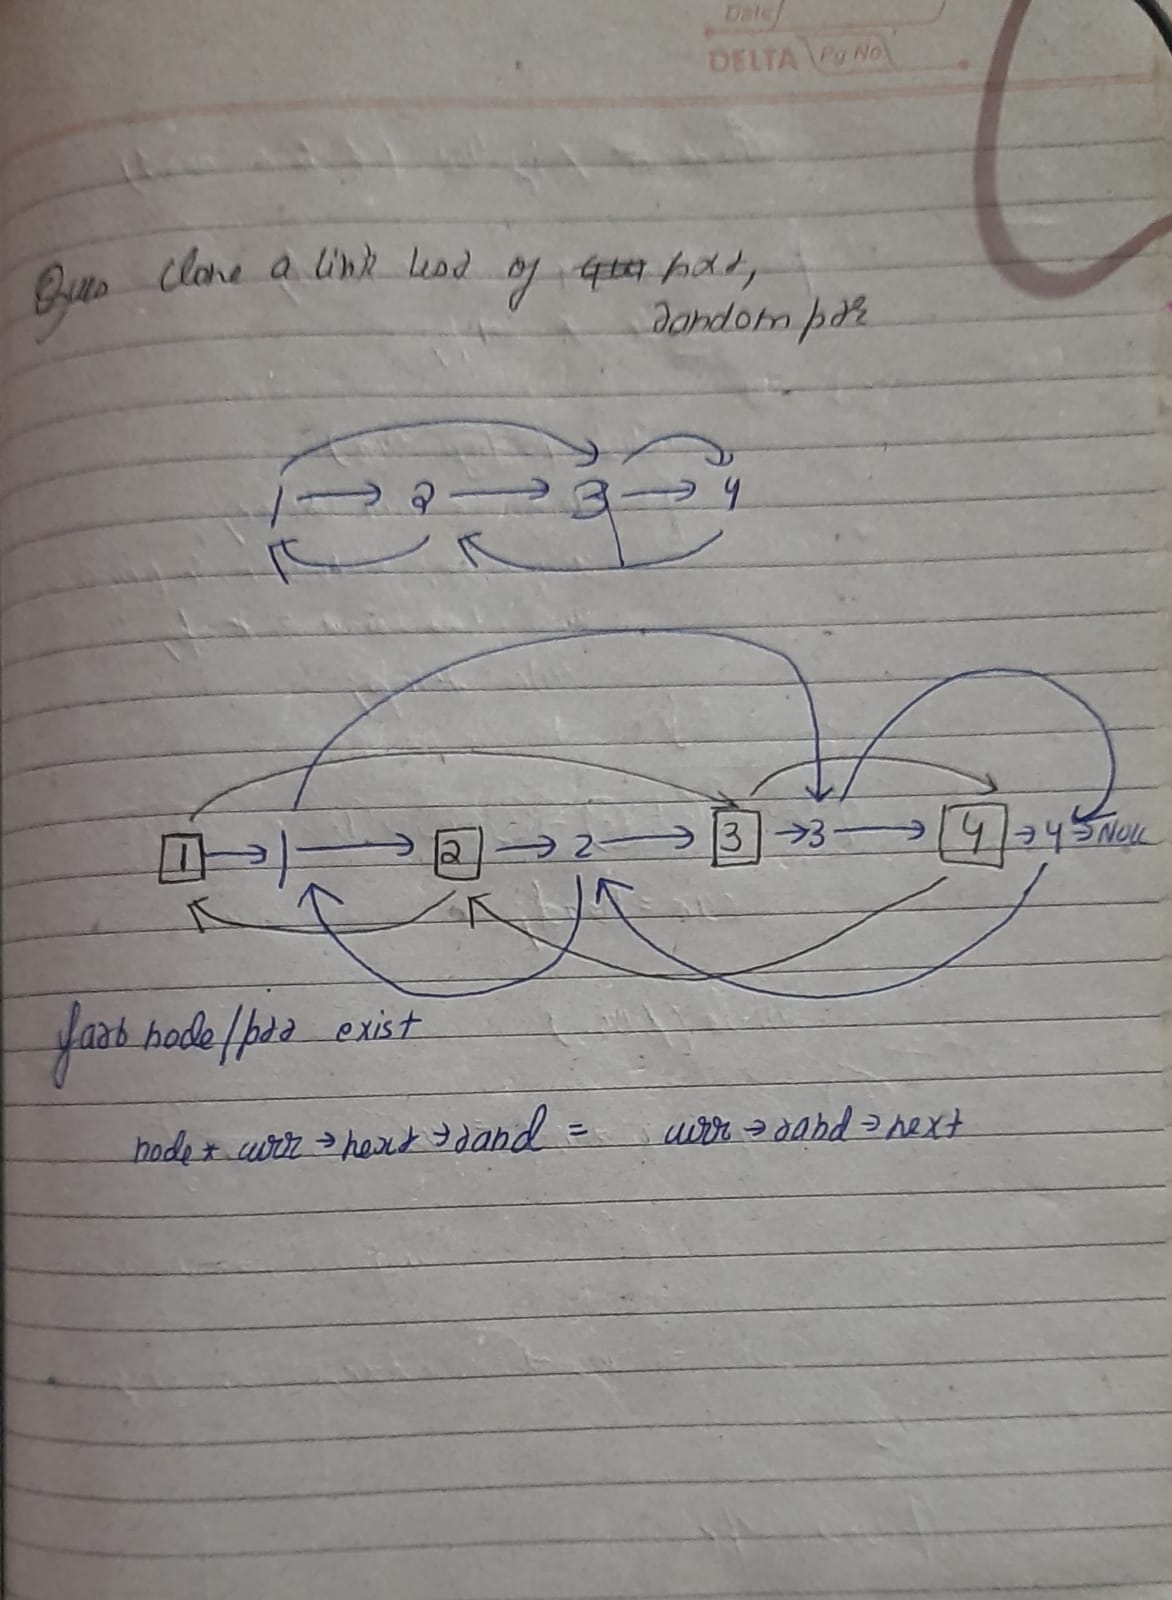 Date
DELTA Pg No
Ques Clone a link list of nxt,
random ptr
1 → 2 → 3 → 4
1 → 1 → 2 → 2 → 3 → 3 → 4 → 4 → NULL
node/ptr exist
node * curr → next → rand = curr → rand → next